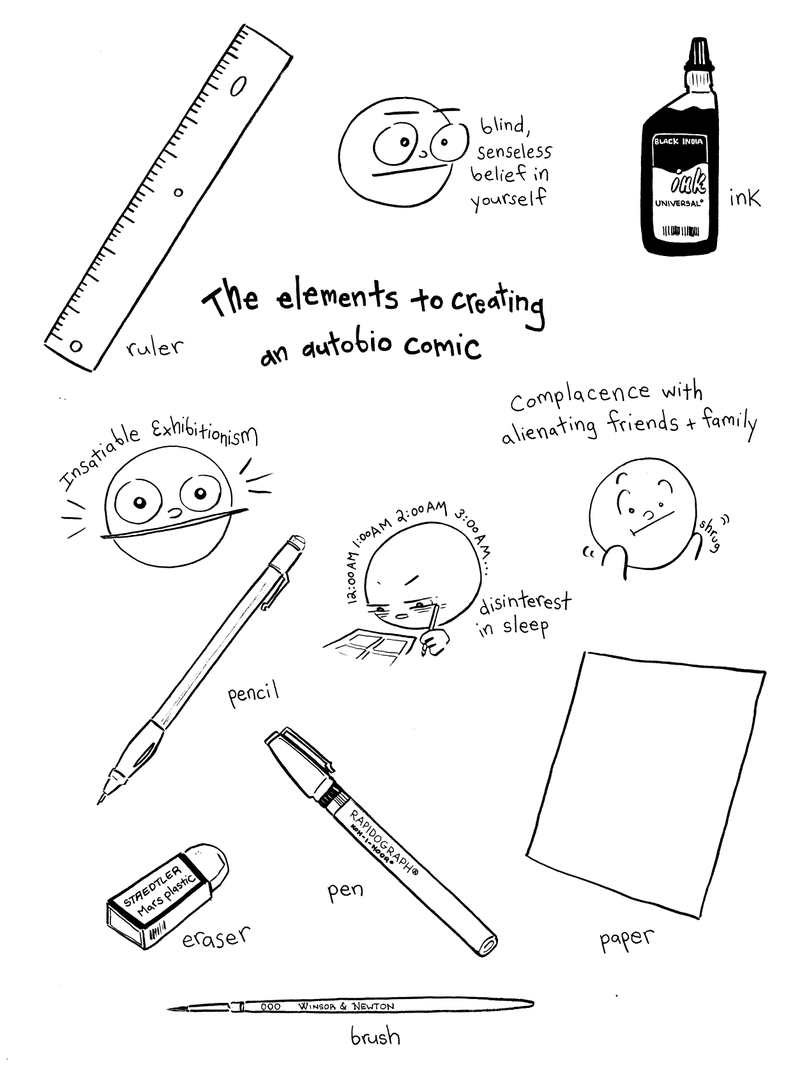 blind,
senseless
belief in
yourself
BLACK INDIA
ink
UNIVERSAL®
ink
The elements to creating
an autobio comic
ruler
Complacence with
alienating friends + family
Insatiable Exhibitionism
12:00AM 1:00AM 2:00AM 3:00AM...
shrug
disinterest
in sleep
pencil
RAPIDOGRAPH®
KOH-I-NOOR®
pen
STAEDTLER
Mars plastic
eraser
paper
000 WINSOR & NEWTON
brush